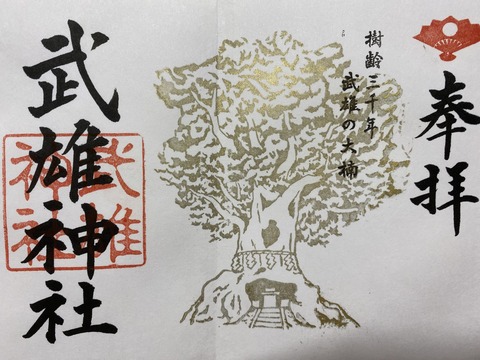 奉拝
樹齢三千年
武雄の大楠
武雄神社
武雄
神社